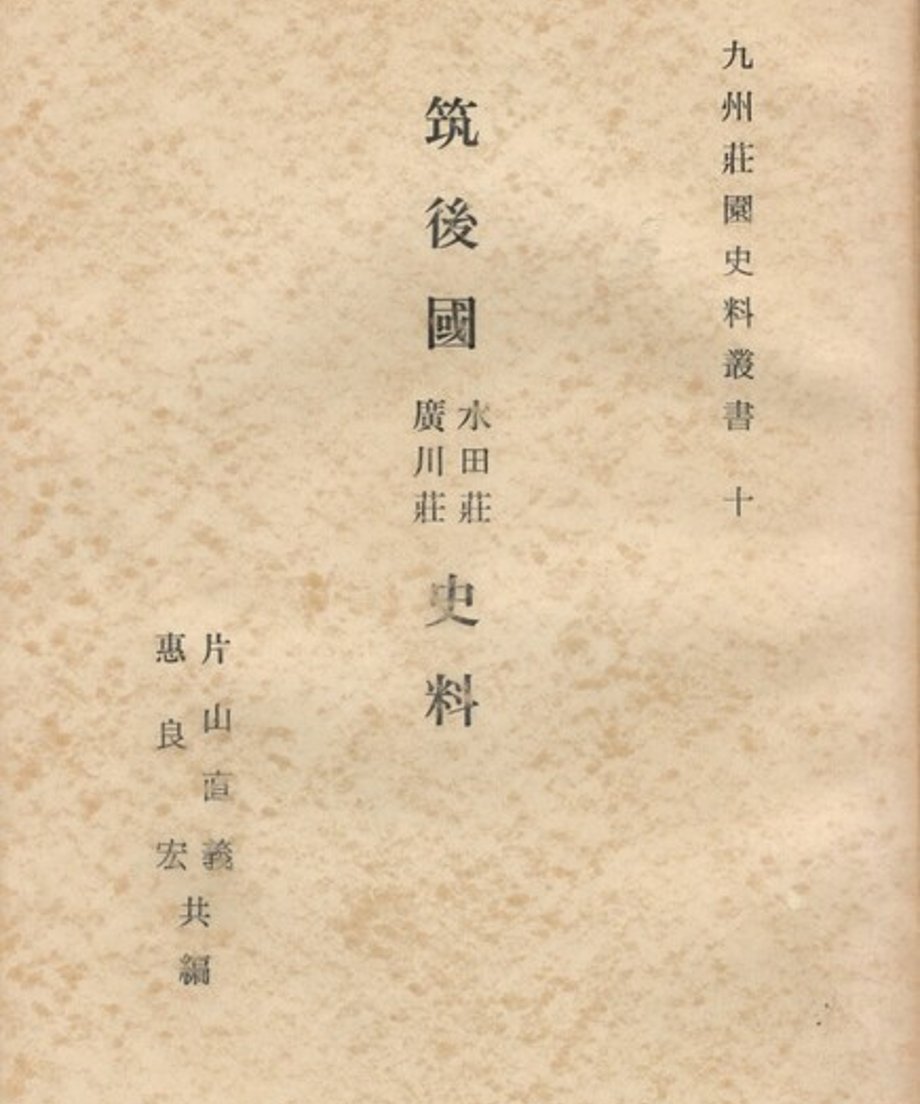 九州莊園史料叢書 十
筑後國
水田莊
廣川莊
史料
片山直義
惠良宏
共編